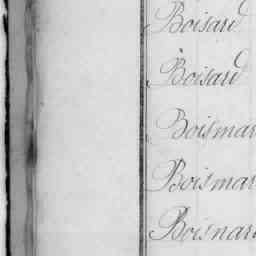 Boisard
Boisard
Boismar
Boismar
Boisnar